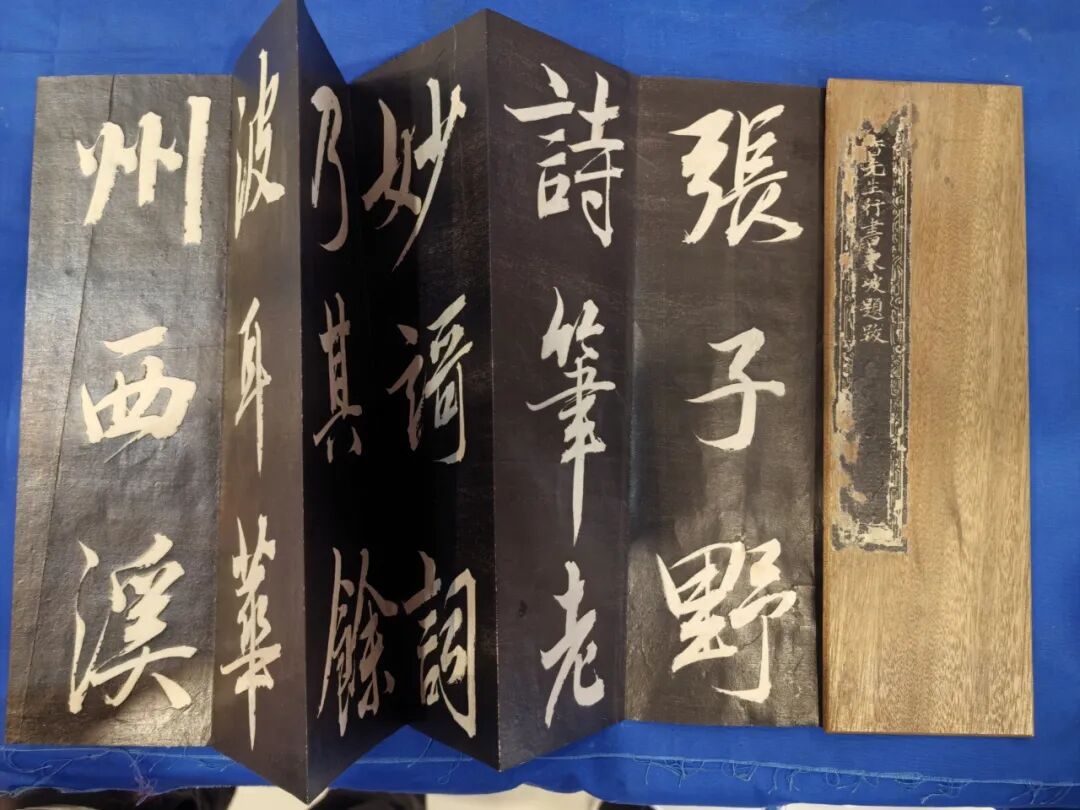 先生行書東坡題跋
張子野
詩筆老
妙謌詞
乃其餘
波耳華
州西溪